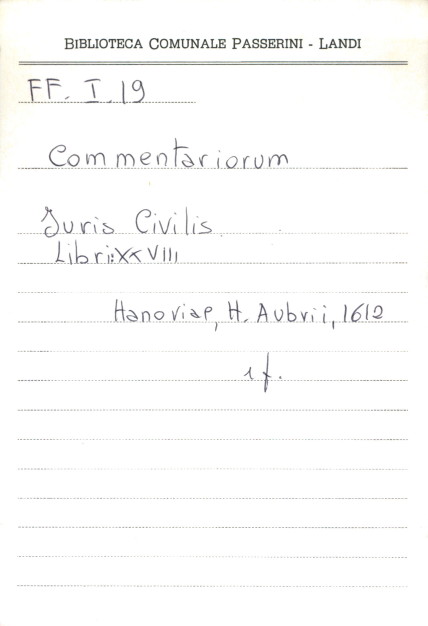 BIBLIOTECA COMUNALE PASSERINI - LANDI
FF. I. 19
Commentariorum
Juris Civilis
Libri: XXVIII
Hanoviae, H. Aubrii, 1612
1 f.